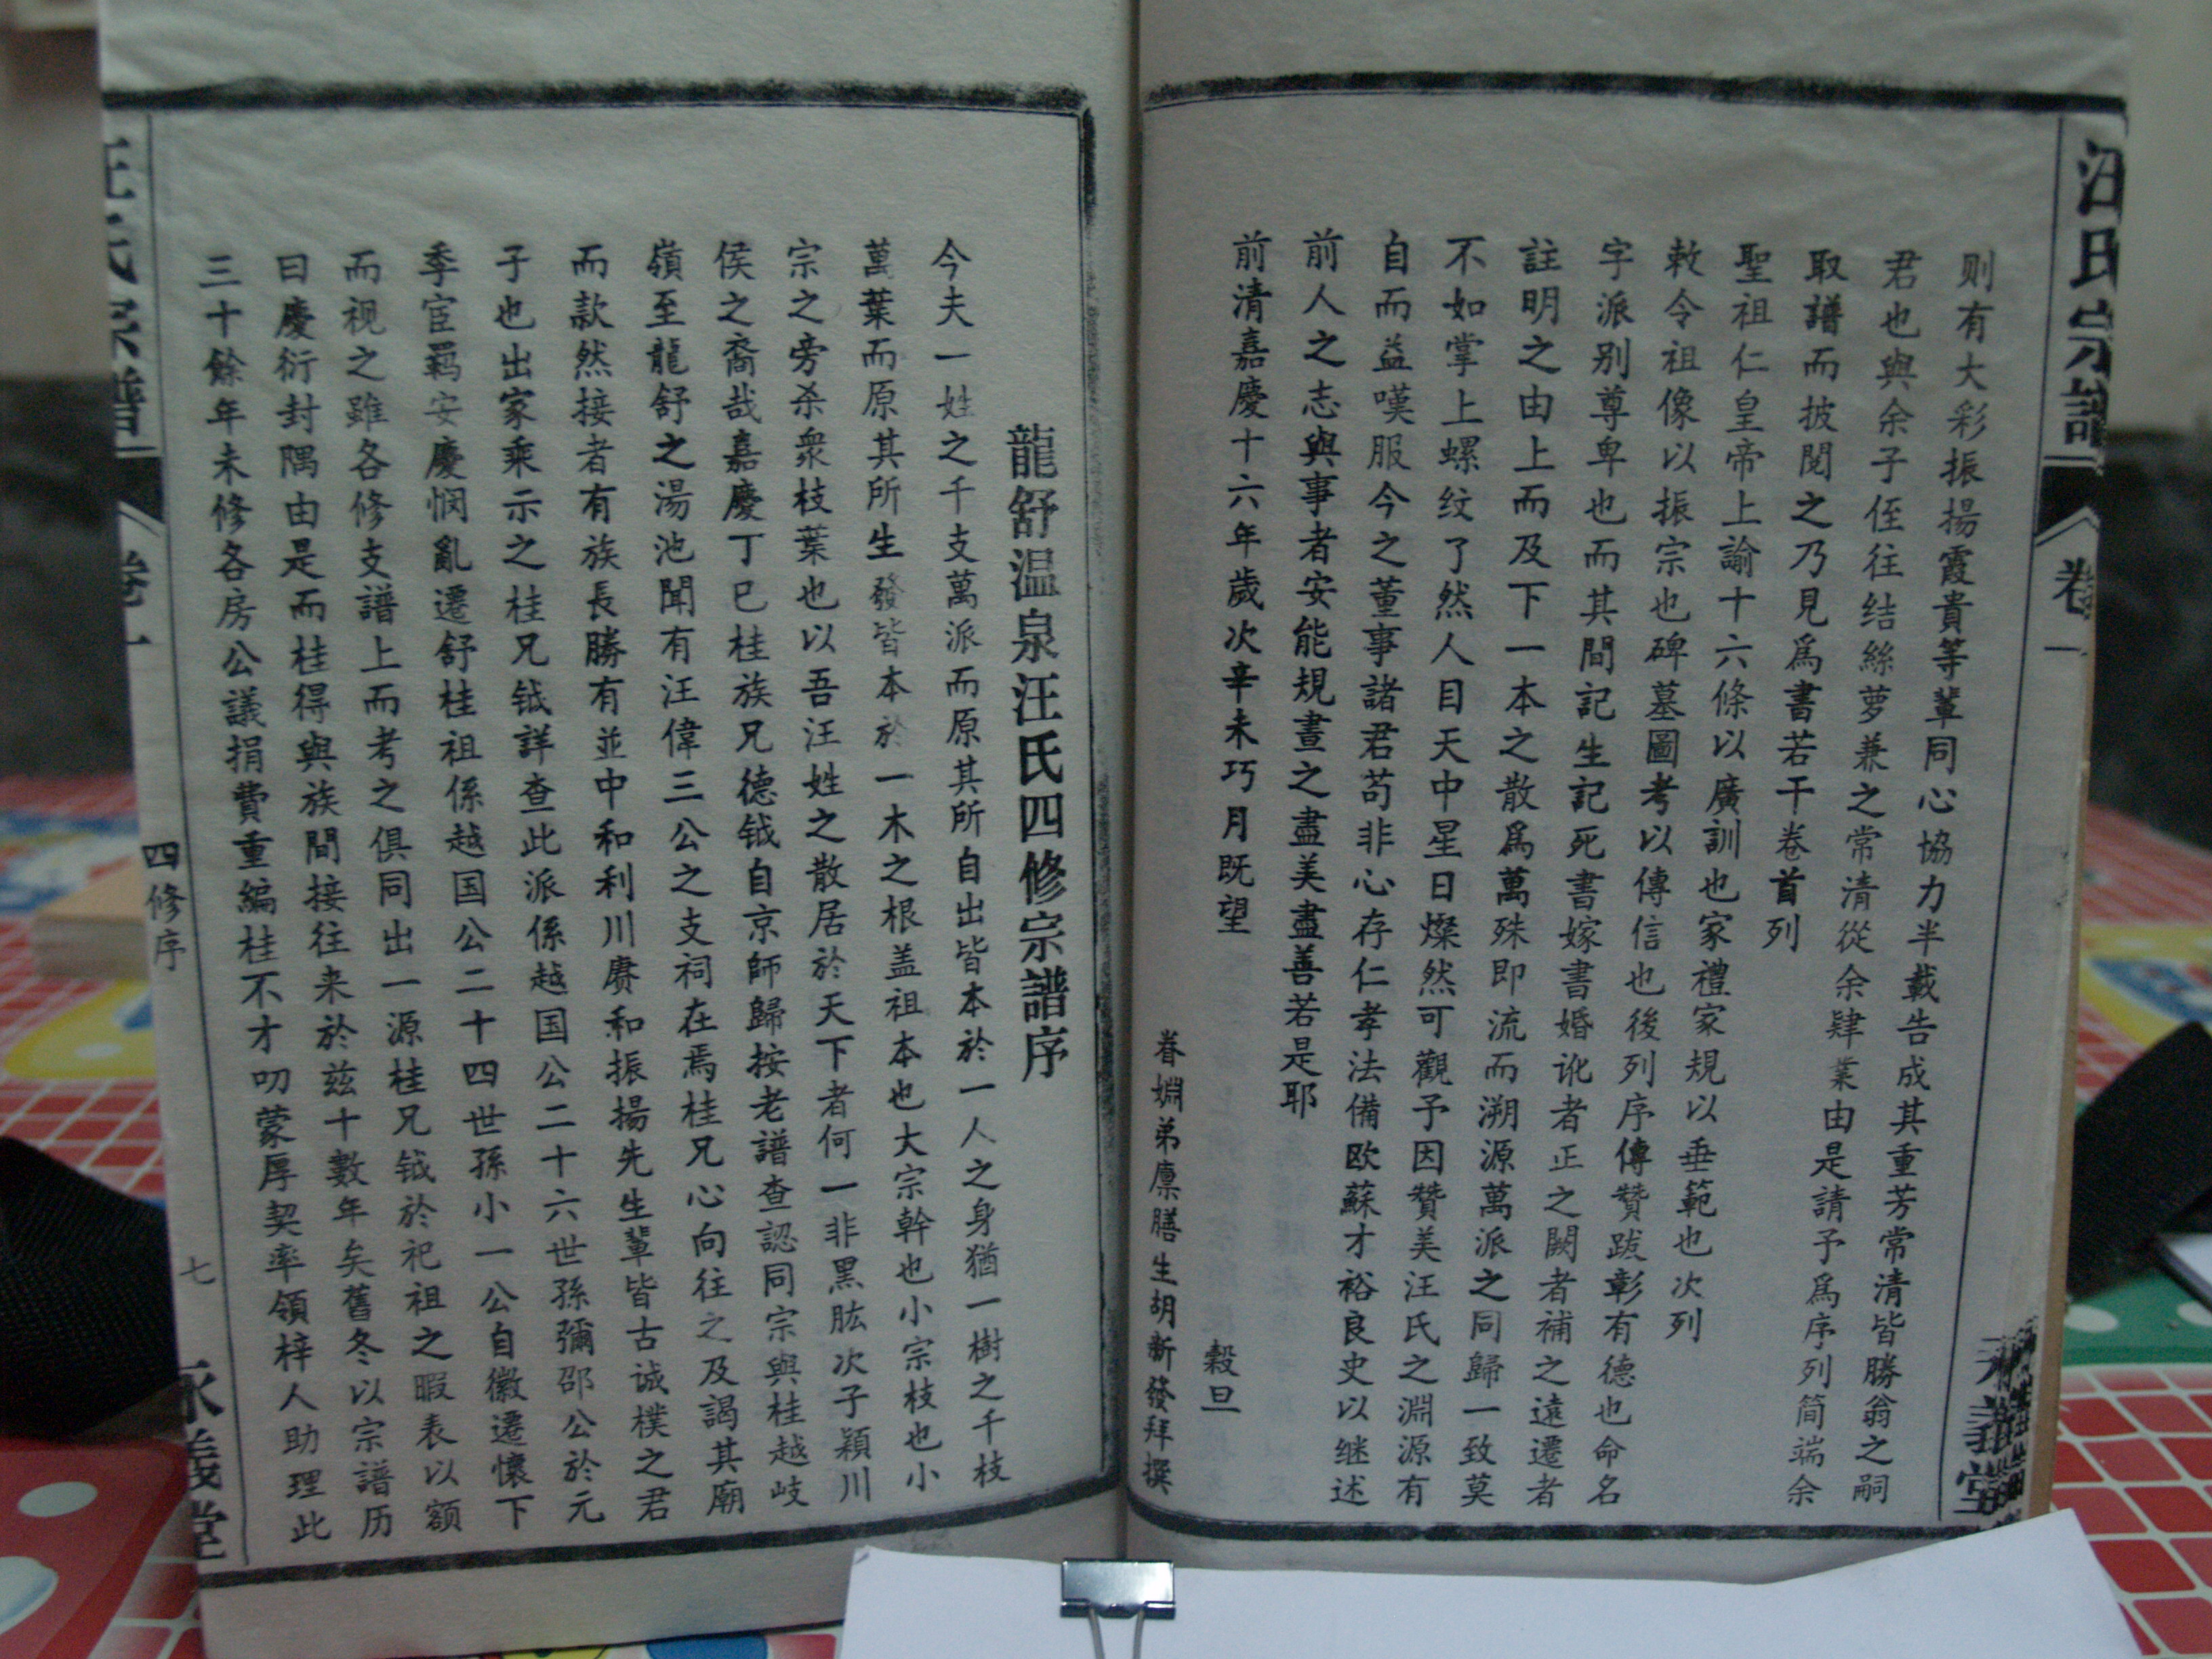 汪氏宗譜
卷一
永義堂
则有大彩振揚霞貴等輩同心協力半載告成其重芳常清皆勝翁之嗣
君也與余子侄往结絲萝兼之常清從余肄業由是請予爲序列简端余
取譜而披閱之乃見爲書若干卷首列
聖祖仁皇帝上諭十六條以廣訓也家禮家規以垂範也次列
敕令祖像以振宗也碑墓圖考以傳信也後列序傳贊跋彰有德也命名
字派别尊卑也而其間記生記死書嫁書婚訛者正之闕者補之遠遷者
註明之由上而及下一本之散爲萬殊即流而溯源萬派之同歸一致莫
不如掌上螺纹了然人目天中星日燦然可觀予因贊美汪氏之淵源有
自而益嘆服今之董事諸君苟非心存仁孝法備欧蘇才裕良史以继述
前人之志與事者安能規畫之盡美盡善若是耶
前清嘉慶十六年歲次辛未巧月既望
穀旦
眷姻弟廪膳生胡新發拜撰
龍舒温泉汪氏四修宗譜序
今夫一姓之千支萬派而原其所自出皆本於一人之身猶一樹之千枝
萬葉而原其所生發皆本於一木之根盖祖本也大宗幹也小宗枝也小
宗之旁杀衆枝葉也以吾汪姓之散居於天下者何一非黑肱次子穎川
侯之裔哉嘉慶丁巳桂族兄德钺自京師歸按老譜查認同宗與桂越岐
嶺至龍舒之湯池聞有汪偉三公之支祠在焉桂兄心向往之及謁其廟
而款然接者有族長勝有並中和利川赓和振揚先生輩皆古诚樸之君
子也出家乘示之桂兄钺詳查此派係越国公二十六世孫彌邵公於元
季宦羁安慶悯亂遷舒桂祖係越国公二十四世孫小一公自徽遷懷下
而视之雖各修支譜上而考之俱同出一源桂兄钺於祀祖之暇表以額
曰慶衍封隅由是而桂得與族間接往来於兹十數年矣舊冬以宗譜历
三十餘年未修各房公議捐費重編桂不才叨蒙厚契率領梓人助理此
汪氏宗譜
卷一
四修序
七
永義堂